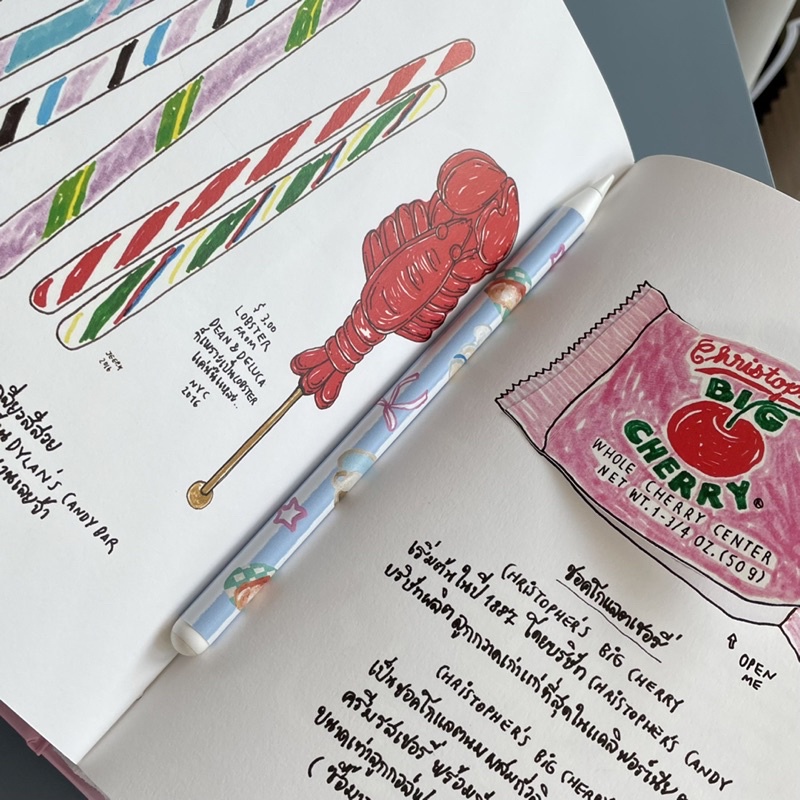 $3.00
LOBSTER
FROM
DEAN & DELUCA
ก็เพราะเป็นLOBSTER
แค่นั้นแหละ..
NYC
2016
DYLAN'S CANDY BAR
Christop
BIG
CHERRY®
WHOLE CHERRY CENTER
NET WT. 1-3/4 OZ. (50g)
OPEN
ME
ช็อคโกแลตเชอร์รี่
CHRISTOPHER'S BIG CHERRY
เริ่มต้นในปี 1887 โดยบริษัท CHRISTOPHER'S CANDY
บริษัทผลิตลูกกวาดเก่าแก่ที่สุดในแคลิฟอร์เนีย
CHRISTOPHER'S BIG CHERRY
เป็นช็อคโกแลตนมผสมถั่ว
ครีมรสเชอร์รี่ พร้อม
ขนาดเท่าลูกกอล์ฟ